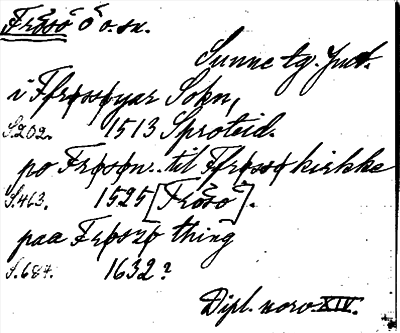 Frösö ö o. sn.
Sunne tg. Jmtl.
i Ffrøsøyar Sokn,
S.202. 1513 Sproteid.
po Frøsøn.. til Ffrøssø kirkke
S.463. 1525 [Frösö].
paa Frøszø thing
S.684. 1632?
Dipl. norv. XIV.